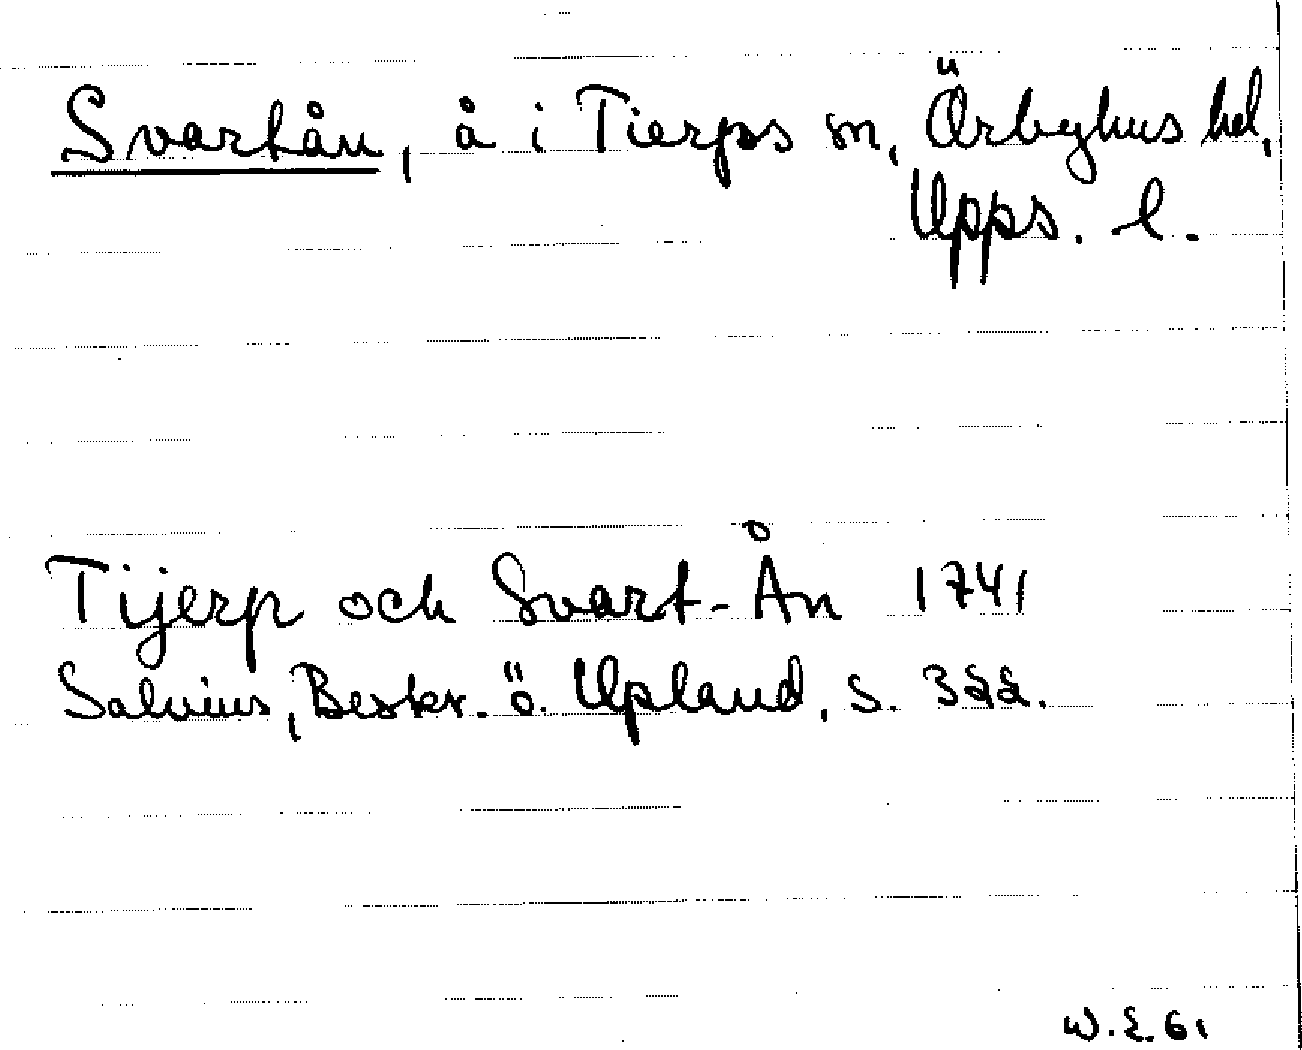 Svartån, å i Tierps sn, Örbyhus hd,
Upps. l.
Tijerp och Svart-Ån 1741
Salvius, Beskr. ö. Upland, s. 322.
W.E. 61